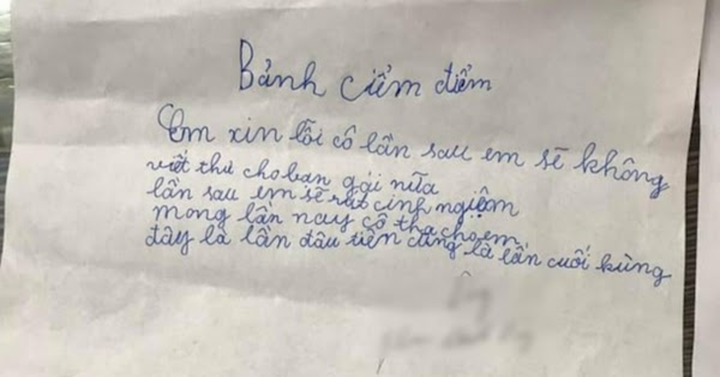 Bảnh ciểm điểm
Em xin lỗi cô lần sau em sẽ không
viết thư cho bạn gái nữa
lần sau em sẽ rút cinh ngiệm
mong lần nay cô tha cho em
đây là lần đầu tiên cũng là lần cuối kùng